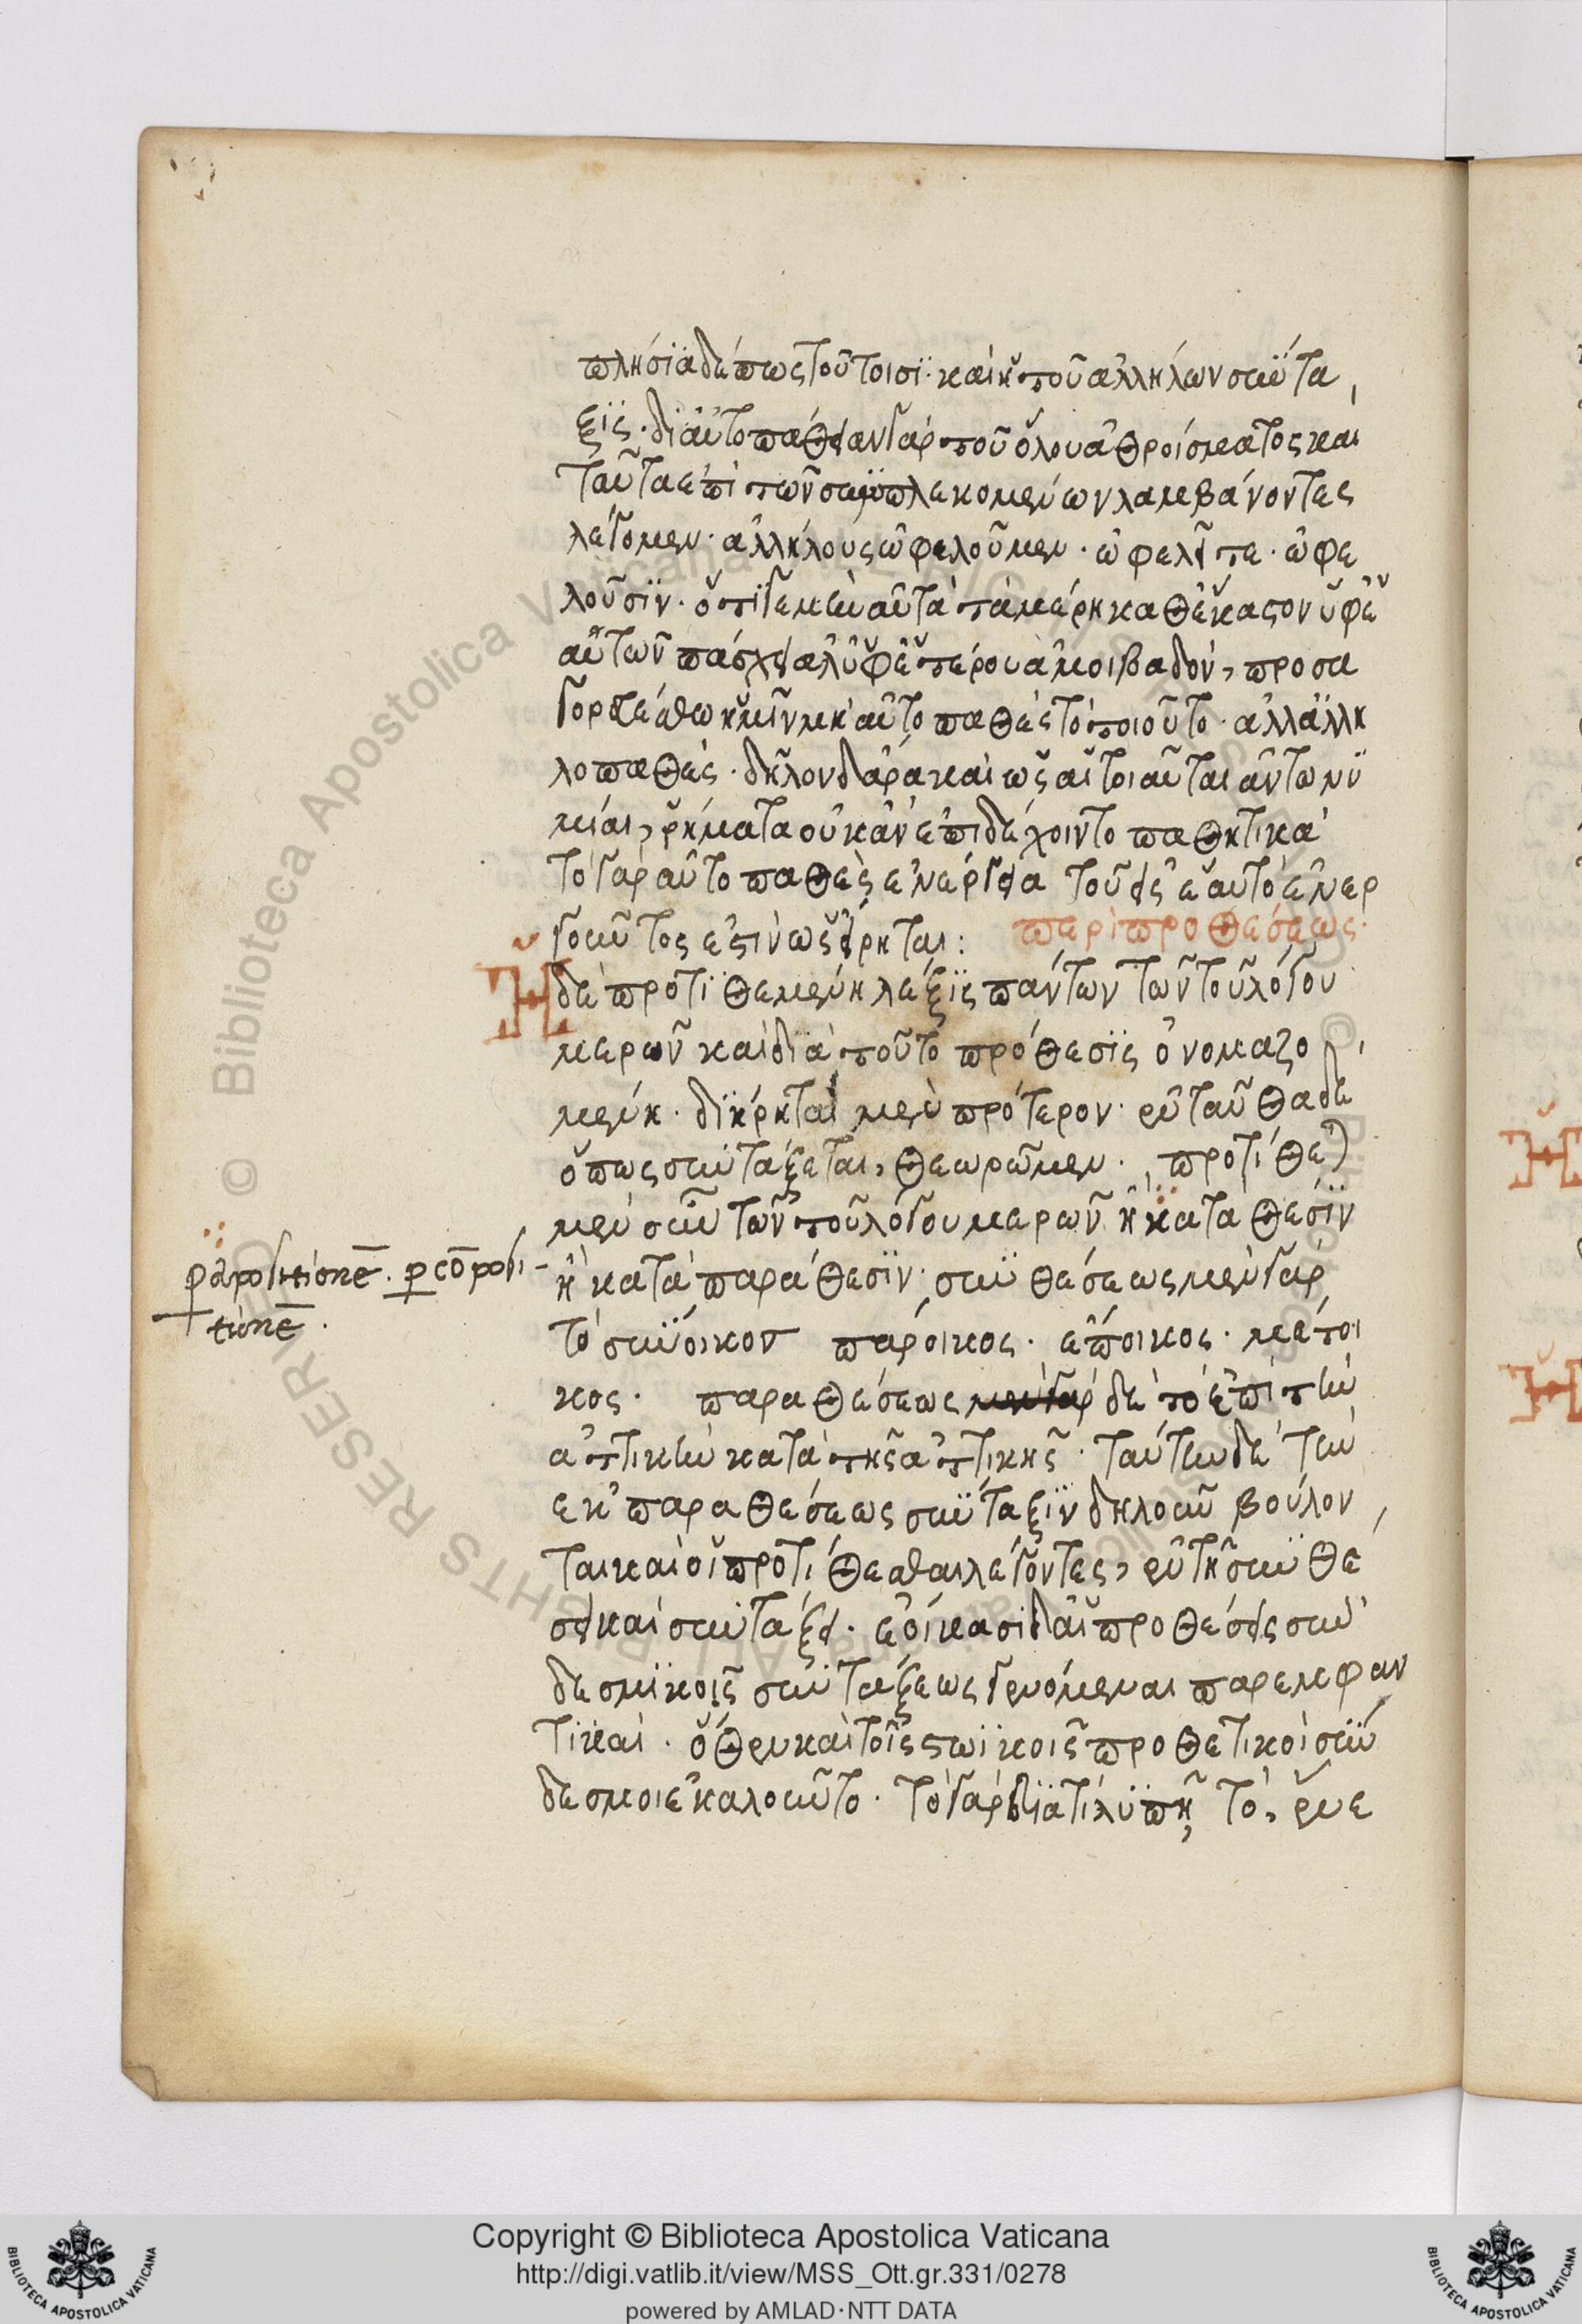 πλησία δέ πως τούτοισι· καὶ ἡ τοῦ ἀλλήλων σύντα
ξις. δι' αὐτοπάθειαν γὰρ τοῦ ὅλου ἀθροίσματος καὶ
ταῦτα ἐπὶ τῶν συμπλεκομένων λαμβάνοντες
λέγομεν. ἀλλήλους ὠφελοῦμεν. ὠφελεῖτε. ὠφε
λοῦσιν. ὅτι γε μὴν αὐτὰ τὰ μέρη καθ' ἕκαστον ὑφ' ἑ
αυτῶν πάσχει ἀλλ' ὑφ' ἑτέρου ἀμοιβαδὸν, προσα
γορευέσθω ἡμῖν μὴ αὐτοπαθὲς τὸ τοιοῦτο. ἀλλ' ἀλλη
λοπαθές. δῆλον δ' ἄρα καὶ ὡς αἱ τοιαῦται ἀντωνυ
μίαι, ῥήματα οὐκ ἂν ἐπιδέχοιντο παθητικά
τὸ γὰρ αὐτοπαθὲς ἐνέργεια τοῦ εἰς ἑαυτὸ ἐνερ
γοῦντος ἐστὶν ὡς εἴρηται: περὶ προθέσεως.
Ἡ δὲ προτιθεμένη λέξις πάντων τῶν τοῦ λόγου
μερῶν καὶ διὰ τοῦτο πρόθεσις ὀνομαζο
μένη. διῄρηται μὲν πρότερον. ἐνταῦθα δὲ
ὅπως συντάξεται, θεωρῶμεν. προτίθεται
μὲν σὺν τῶν τοῦ λόγου μερῶν ἢ κατὰ θέσιν
ἢ κατὰ παράθεσιν. συνθέσεως μὲν γὰρ
τὸ σύνοικον πάροικος. ἔποικος. μέτοι
κος. παραθέσεως μὲν γὰρ δὲ τὸ ἐπὶ τὴν
ἀττικὴν κατὰ τῆς ἀττικῆς. ταύτην δὲ τὴν
ἐκ παραθέσεως σύνταξιν δηλοῦν βούλον
ται καὶ οἱ προτίθεσθαι λέγοντες, ἐν τῇ συνθέ
σει καὶ συντάξει. ἐοίκασι δ' αἱ προθέσεις συν
δεσμικοῖς συντάξεως γενόμεναι παρεμφαν
τικαί. ὅθεν καὶ τοῖς στωικοῖς προθετικοὶ σύν
δεσμοι ἐκαλοῦντο. τὸ γὰρ διὰ τί λύπῃ τὸ, ἕνε
p apositionē. p cōposi-
tionē.
Copyright © Biblioteca Apostolica Vaticana
http://digi.vatlib.it/view/MSS_Ott.gr.331/0278
powered by AMLAD·NTT DATA
BIBLIOTECA APOSTOLICA VATICANA
BIBLIOTECA APOSTOLICA VATICANA